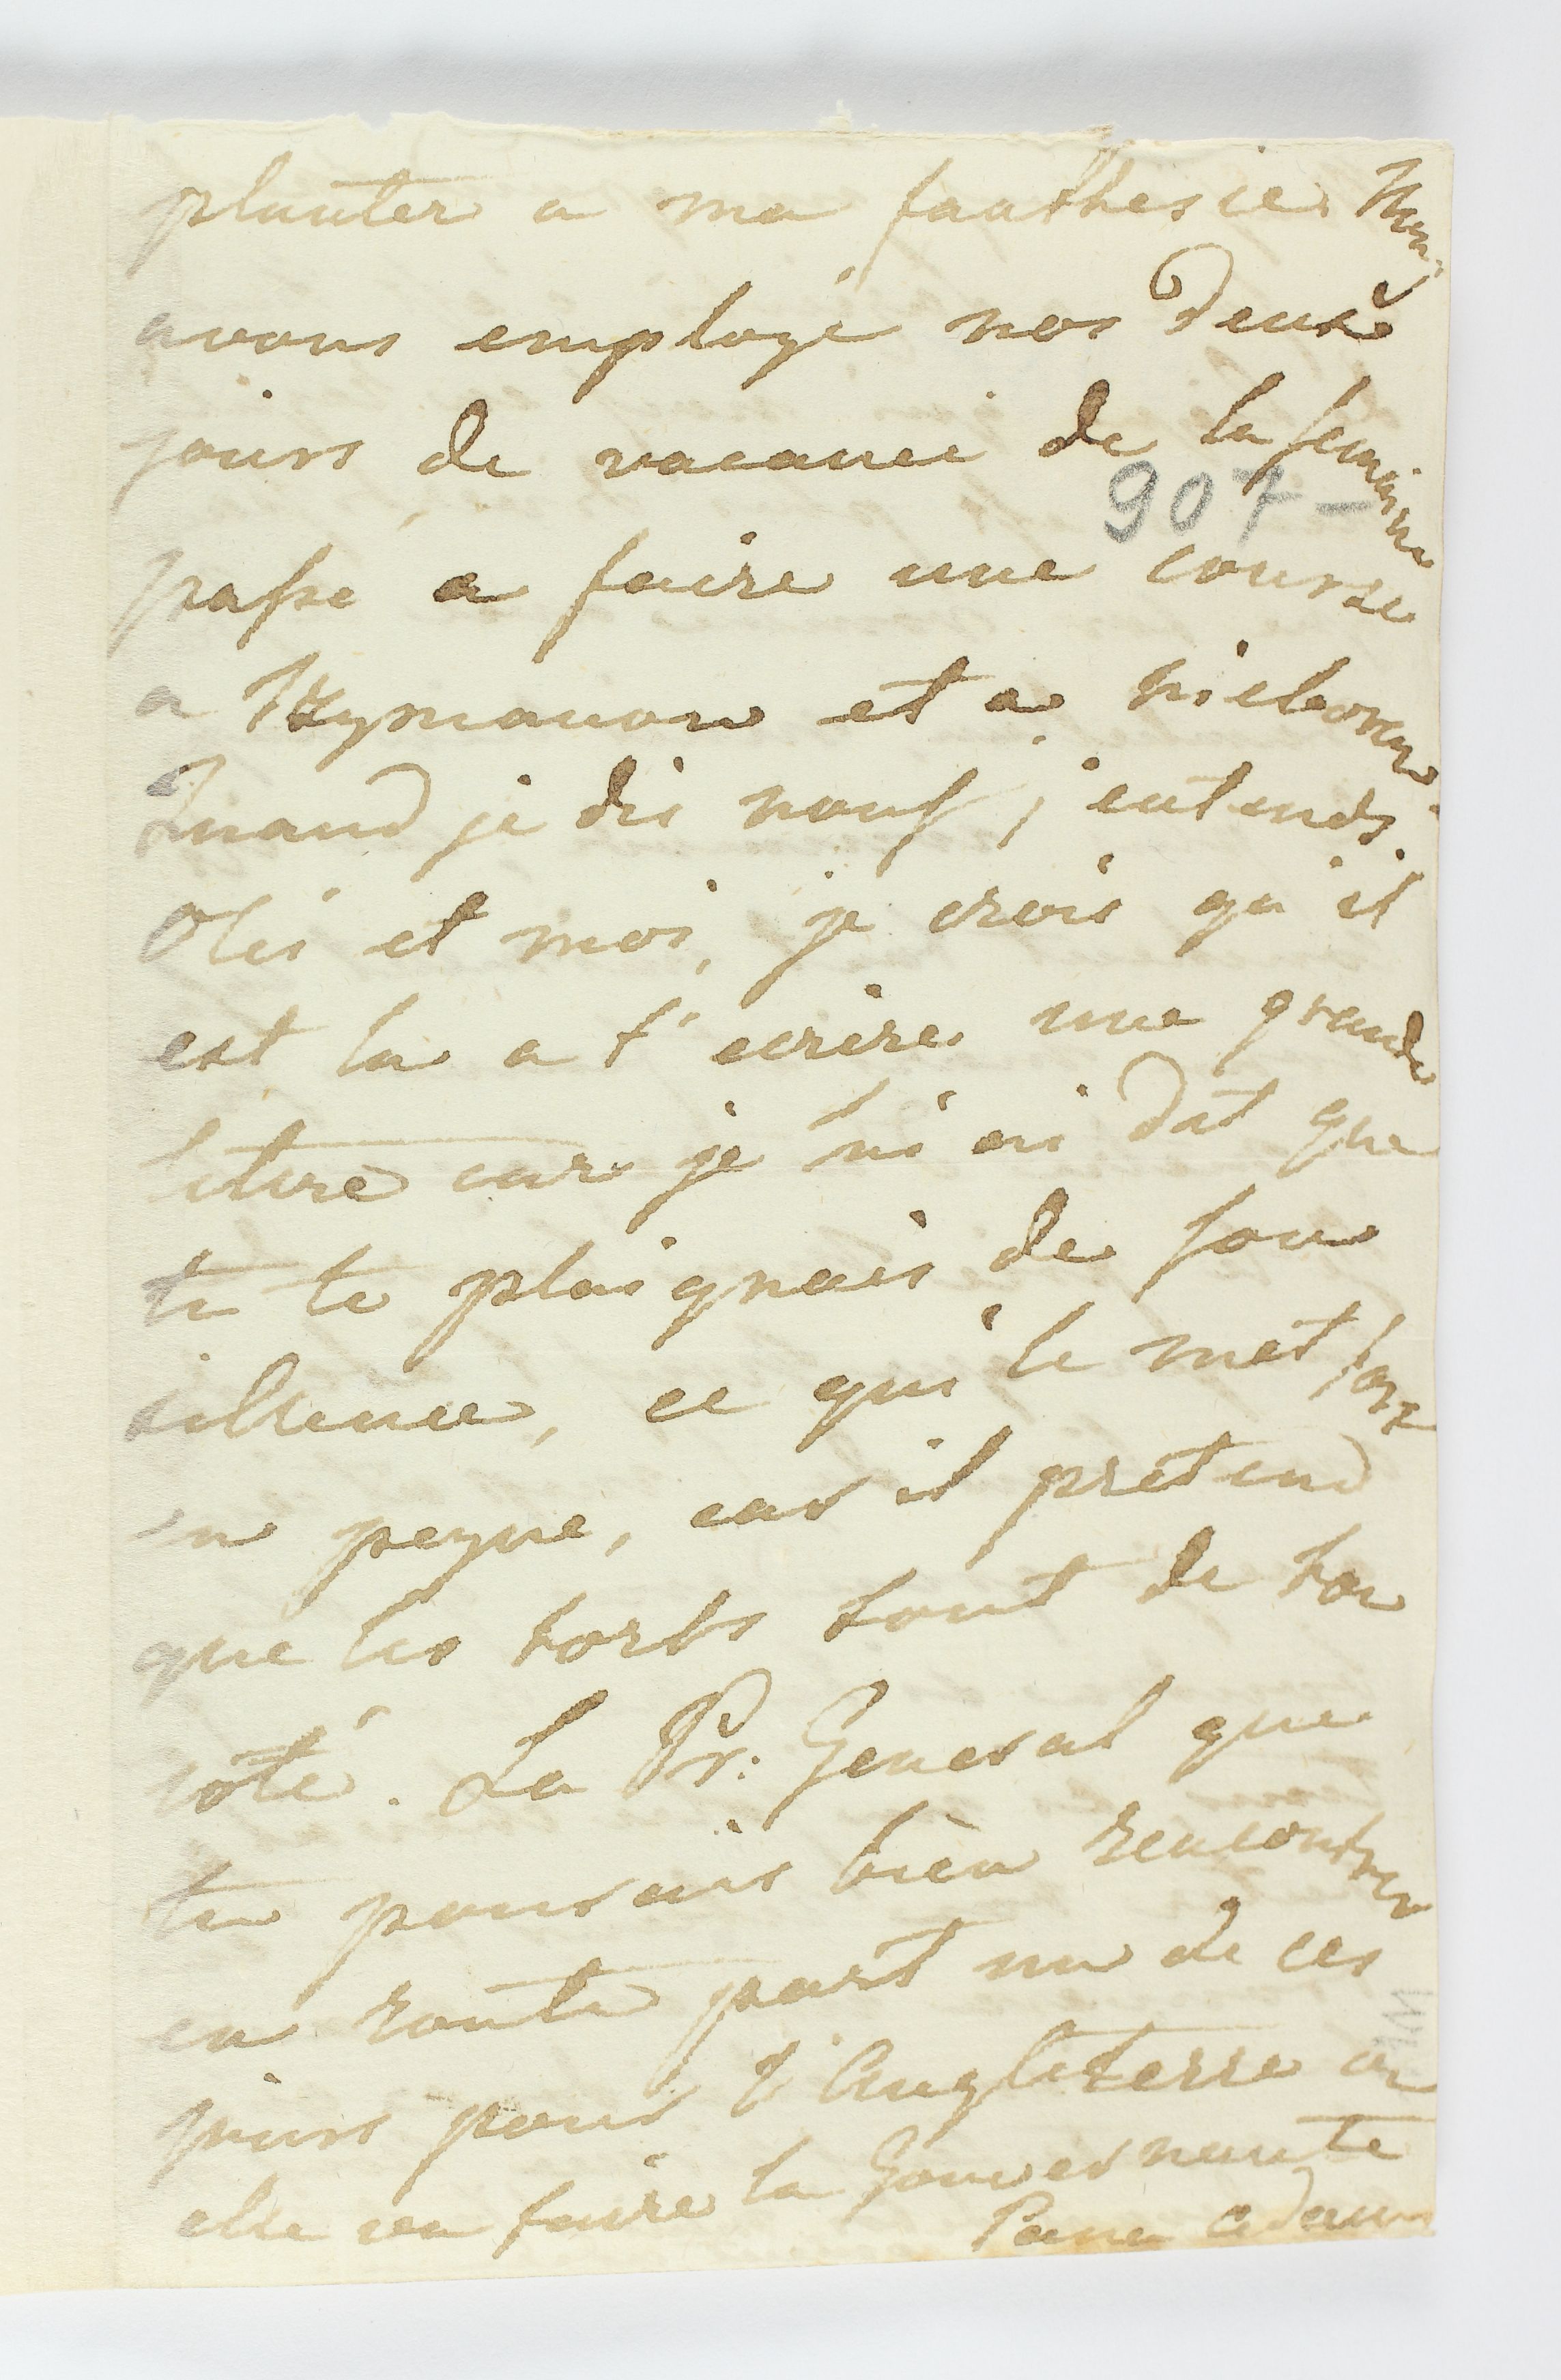 planter a ma fanthesie Nous
avons employé nos deux
jours de vacance de la semaine
907 -
passé a faire une course
a Rzymanow et a
Quand je dis nous, j'entends.
Oles et moi, je crois qu'il
est la a t'ecrire une grande
lettre car je lui ai dit que
tu te plaignais de son
sillence, ce qui le met fort
en peyne, car il pretend
que les torts sont de ton
coté. La Pr: General que
tu pourais bien rencontrer
en route part un de ces
jours pour l'Angleterre ou
elle va faire la Gouvernante
Pana Adam